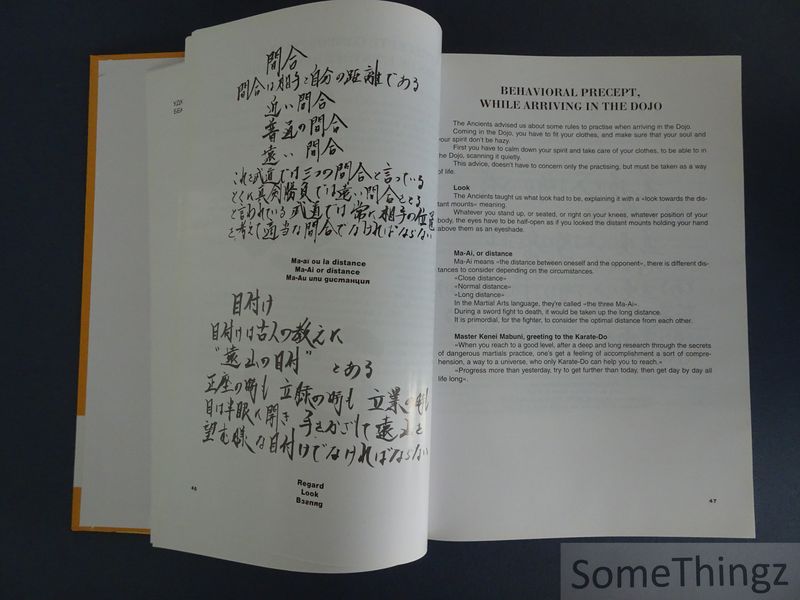 間合
間合は相手と自分の距離である
近い間合
普通の間合
遠い 間合
これを武道では三つの間合と言っている
とくに真剣勝負では遠い間合をとる
と言われている 武道では常に相手の位置
を考えて適当な間合でなければならない
Ma-aï ou la distance
Ma-Ai or distance
Ма-Аи или дистанция
目付け
目付けは古人の教えに
"遠山の目付" とある
正座の時も 立縁の時も 立業の時も
目は半眼に開き 手をかざして遠山を
望む様な目付けでなければならない
Regard
Look
Взгляд
46
BEHAVIORAL PRECEPT,
WHILE ARRIVING IN THE DOJO
The Ancients advised us about some rules to practise when arriving in the Dojo.
Coming in the Dojo, you have to fit your clothes, and make sure that your soul and
your spirit don't be hazy.
First you have to calm down your spirit and take care of your clothes, to be able to in
the Dojo, scanning it quietly.
This advice, doesn't have to concern only the practising, but must be taken as a way
of life.
Look
The Ancients taught us what look had to be, explaining it with a «look towards the dis-
tant mounts» meaning.
Whatever you stand up, or seated, or right on your knees, whatever position of your
body, the eyes have to be half-open as if you looked the distant mounts holding your hand
above them as an eyeshade.
Ma-Ai, or distance
Ma-Ai means «the distance between oneself and the opponent», there is different dis-
tances to consider depending on the circumstances.
«Close distance»
«Normal distance»
«Long distance»
In the Martial Arts language, they're called «the three Ma-Ai».
During a sword fight to death, it would be taken up the long distance.
It is primordial, for the fighter, to consider the optimal distance from each other.
Master Kenei Mabuni, greeting to the Karate-Do
«When you reach to a good level, after a deep and long research through the secrets
of dangerous martials practice, one's get a feeling of accomplishment a sort of compre-
hension, a way to a universe, who only Karate-Do can help you to reach.»
«Progress more than yesterday, try to get further than today, then get day by day all
life long».
47
SomeThingz